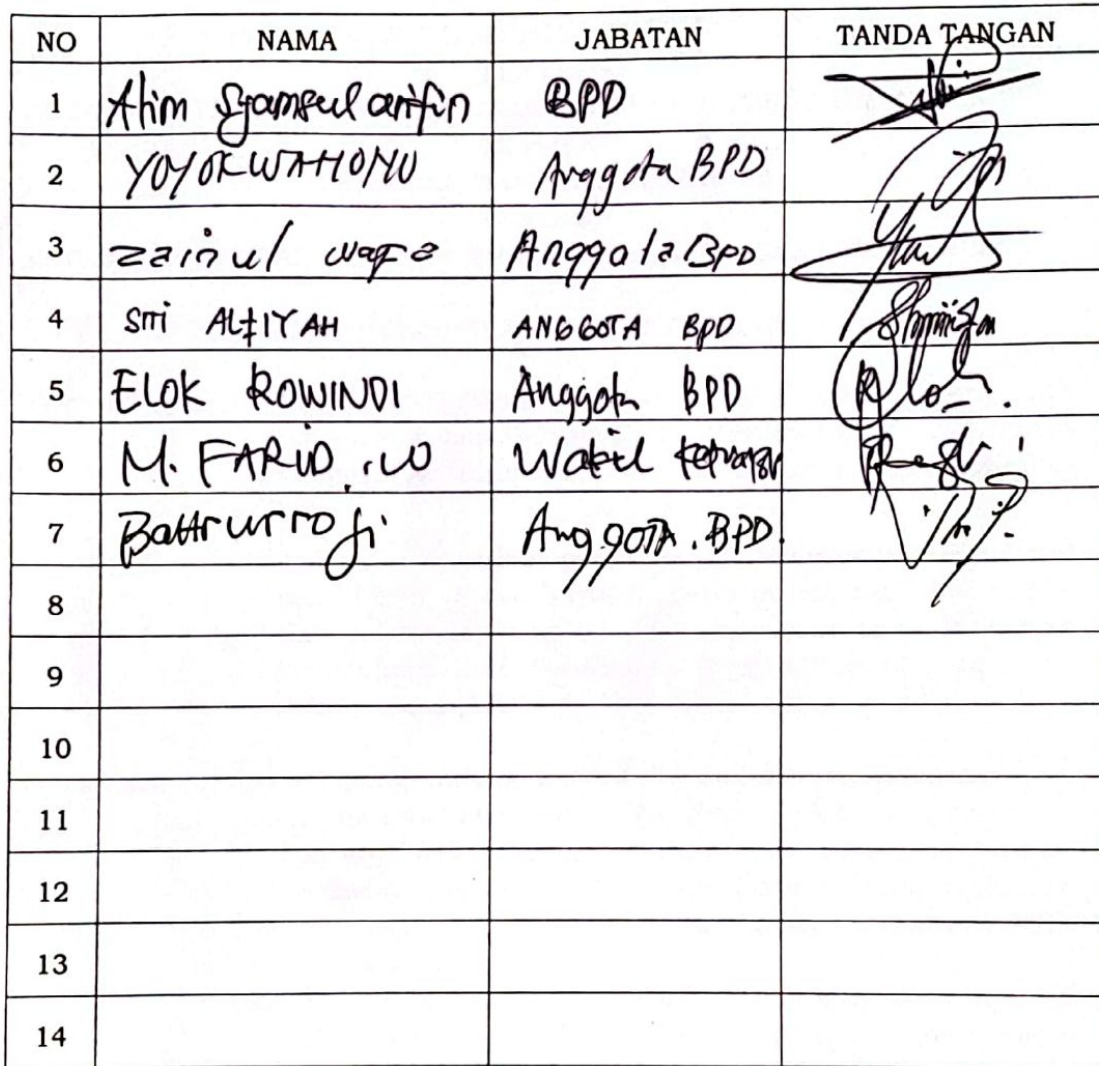 NO NAMA JABATAN TANDA TANGAN
1 Alim Syamsul arifin BPD
2 YOYOK WAHONO Anggota BPD
3 zainul wafa Anggota BPD
4 SITI ALFIYAH ANGGOTA BPD
5 ELOK ROWINDI Anggota BPD
6 M. FARID . W Wakil
7 Anggota . BPD.
8
9
10
11
12
13
14